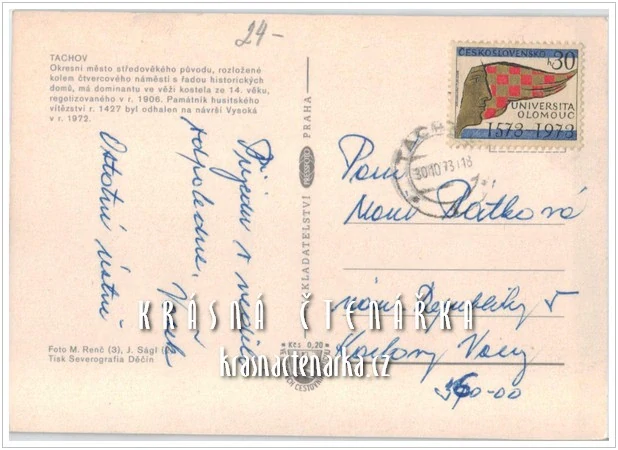 24-
TACHOV
Okresní město středověkého původu, rozložené
kolem čtvercového náměstí s řadou historických
domů, má dominantu ve věži kostela ze 14. věku,
regotizovaného v r. 1906. Památník husitského
vítězství r. 1427 byl odhalen na návrší Vysoká
v r. 1972.
Přijedu v neděli
odpoledne. Vašek
Ostatní ústně
Foto M. Renč (3), J. Ságl
Tisk Severografia Děčín
NAKLADATELSTVÍ PRAHA
Kčs 0,20
ČESKOSLOVENSKO
h 30
UNIVERSITA
OLOMOUC
1573-1973
TACHOV
30.10.73-18
Paní
Datková
nám. Republiky 5
Karlovy Vary
360-00
KRÁSNÁ ČTENÁŘKA
krasnactenarka.cz